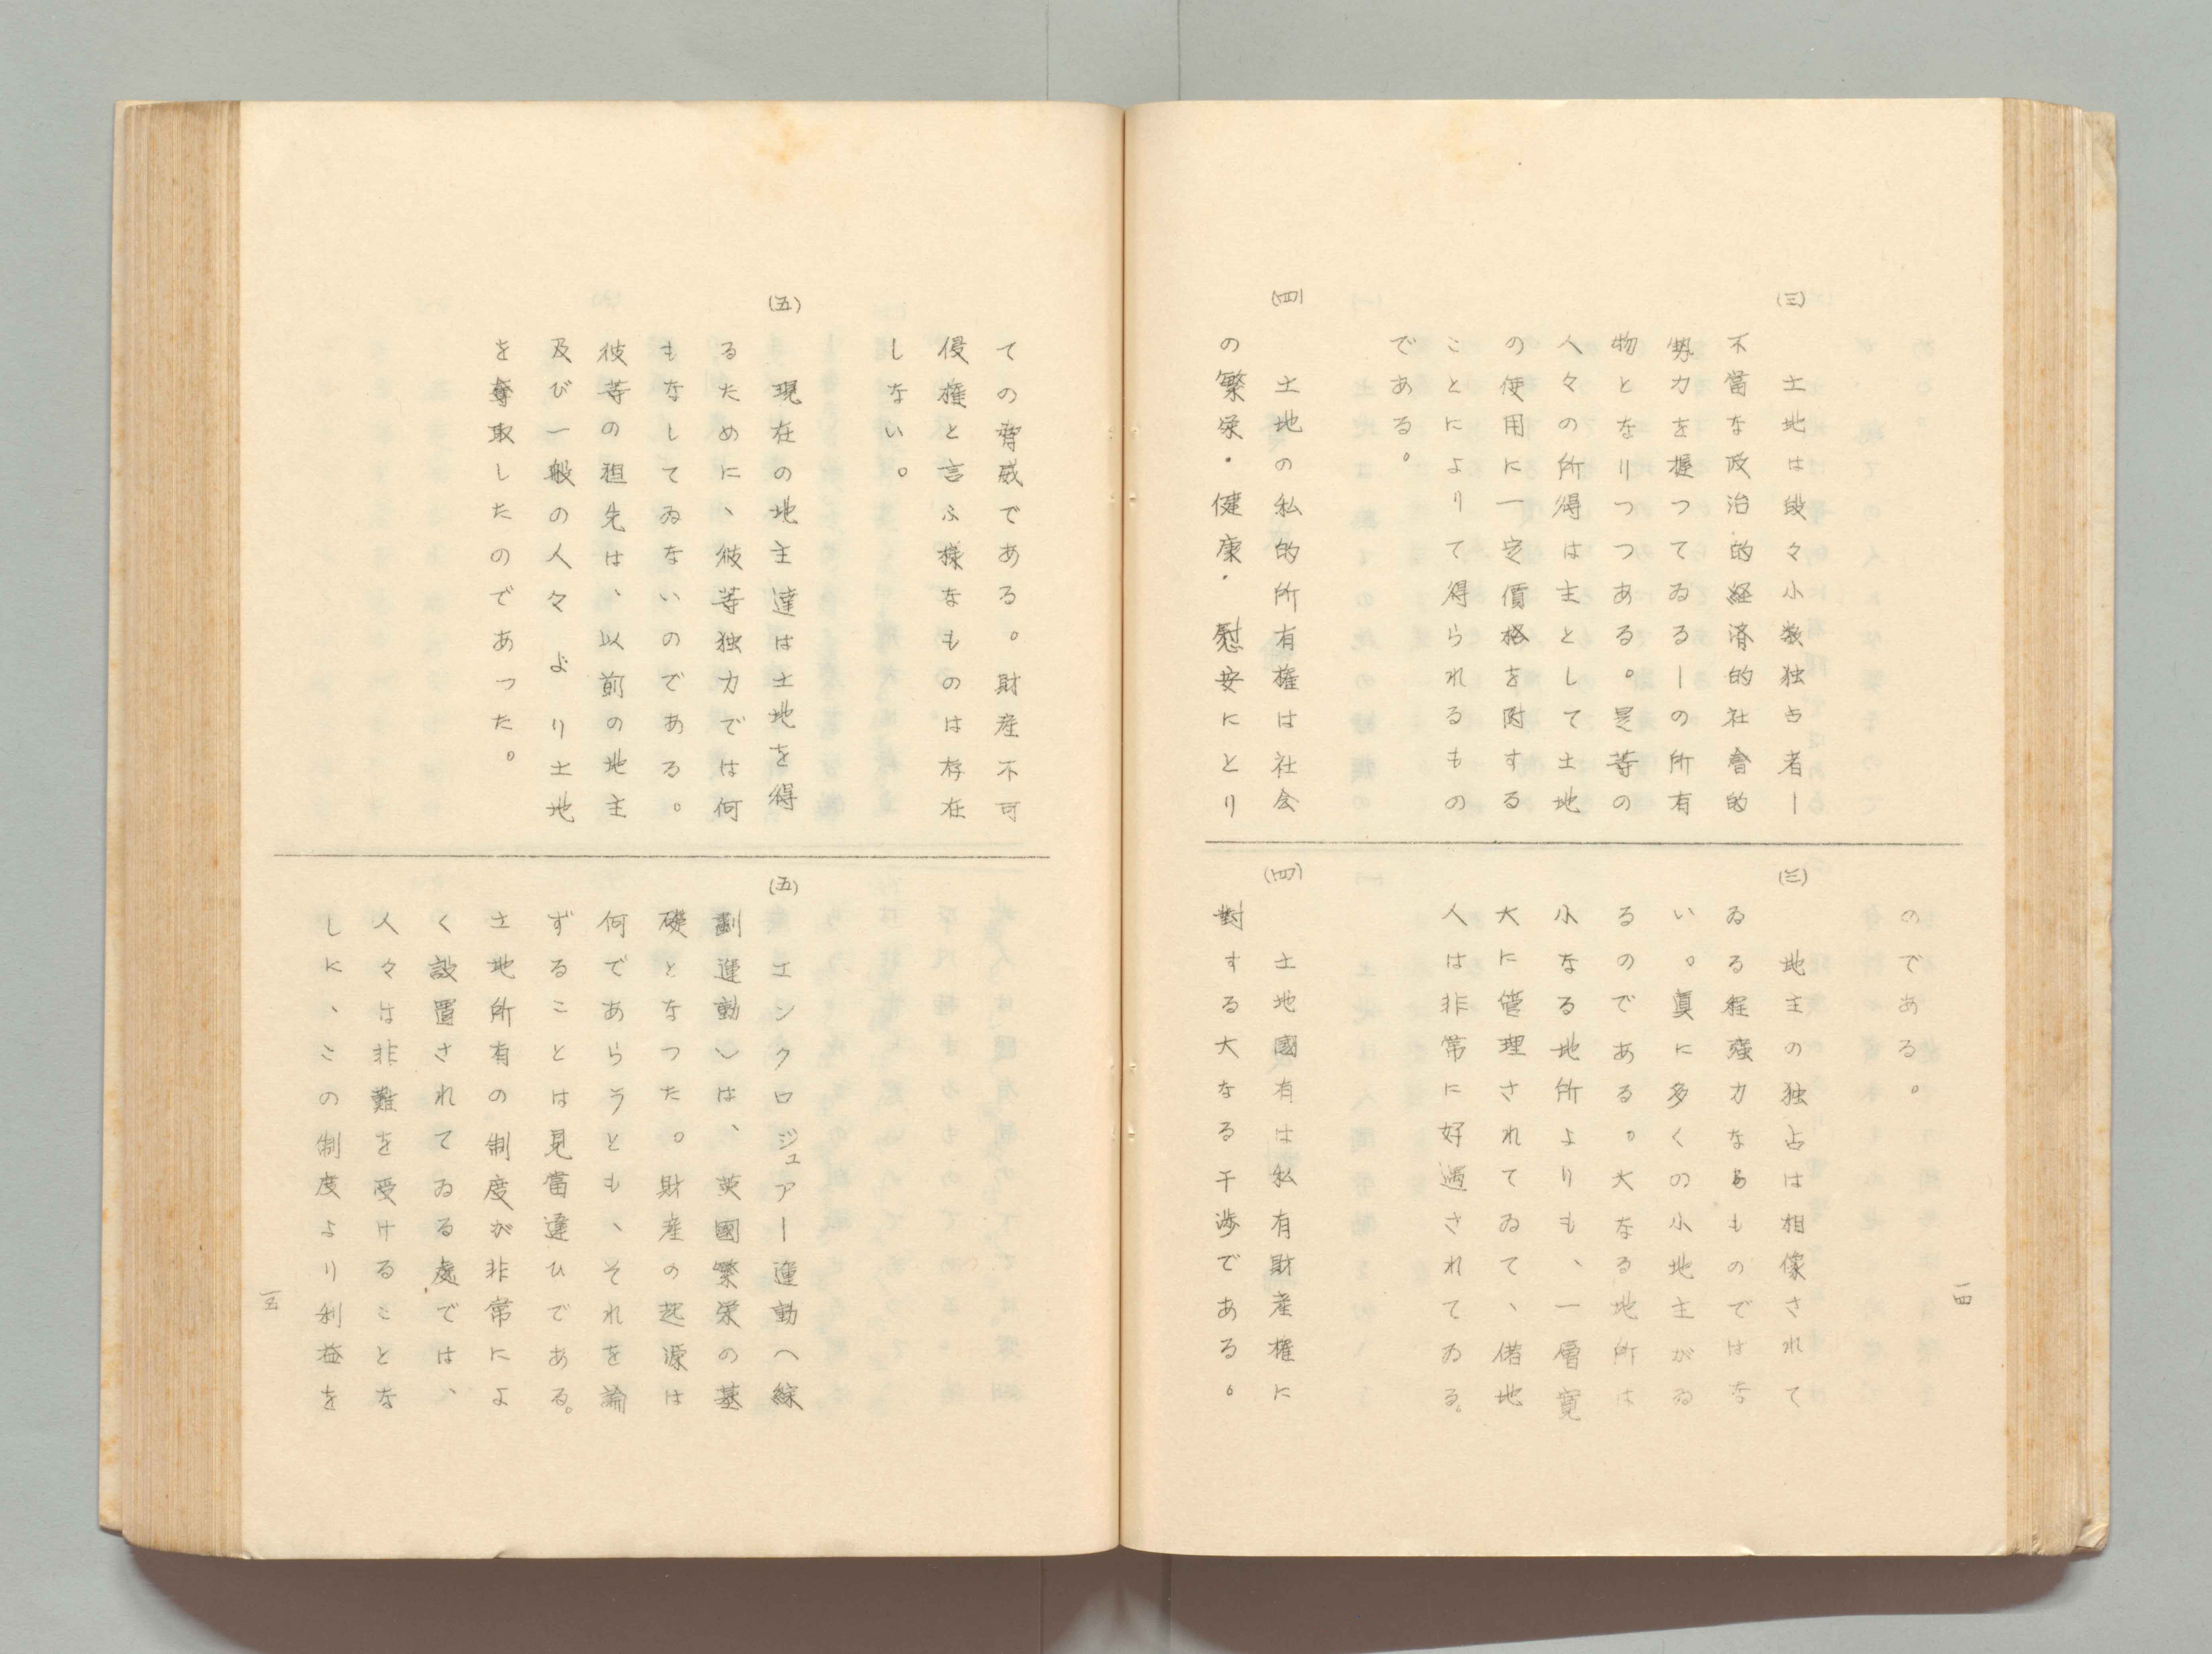 (三)
土地は段々小数独占者ー
不當な政治的経済的社會的
勢力を握つてゐるーの所有
物となりつつある。是等の
人々の所得は主として土地
の使用に一定價格を附する
ことによりて得られるもの
である。
(四)
土地の私的所有権は社会
の繁栄・健康・慰安にとり
のである。
(三)
地主の独占は相像されて
ゐる程強力なるものではな
い。真に多くの小地主がゐ
るのである。大なる地所は
小なる地所よりも、一層寛
大に管理されてゐて、借地
人は非常に好遇されてゐる。
(四)
土地國有は私有財産権に
對する大なる干渉である。
一四
ての脅威である。財産不可
侵権と言ふ様なものは存在
しない。
(五)
現在の地主達は土地を得
るために、彼等独力では何
もなしてゐないのである。
彼等の祖先は、以前の地主
及び一般の人々より土地
を奪取したのであつた。
(五)
エンクロジュアー運動(綜
劃運動)は、英國繁栄の基
礎となつた。財産の起源は
何であらうとも、それを論
ずることは見當違ひである。
土地所有の制度が非常によ
く設置されてゐる處では、
人々は非難を受けることな
しに、この制度より利益を
一五